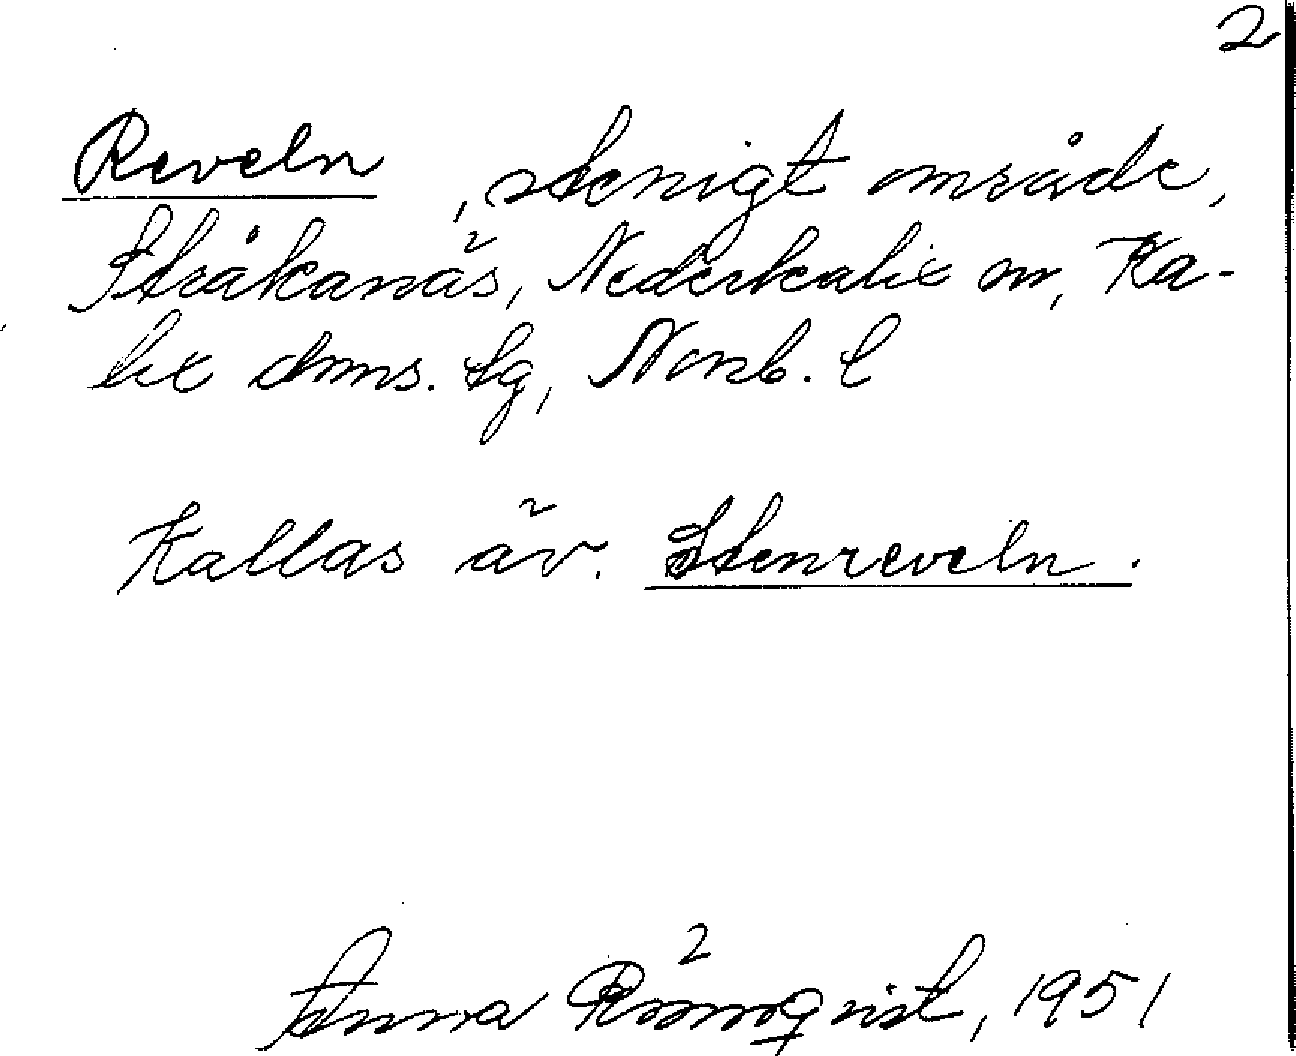 2
Reveln, stenigt område,
Stråkanäs, Nederkalix sn, Ka-
lix dms. lg, Norrb. l
Kallas äv. Stenreveln.
Anna Rönnqvist, 1951